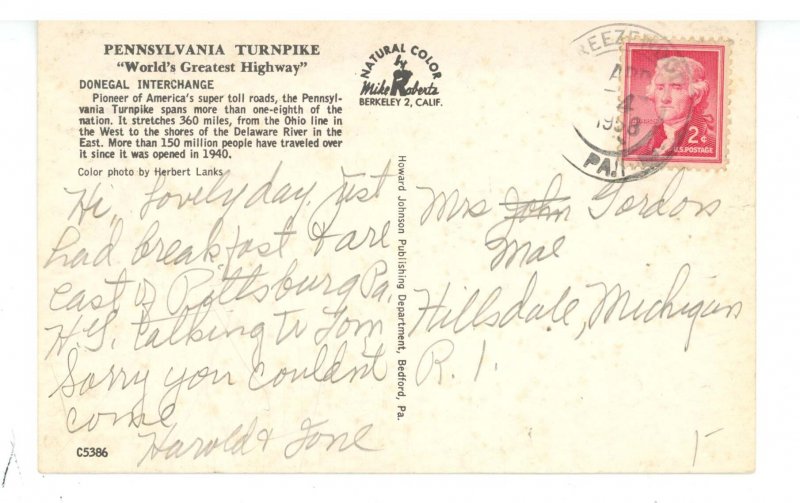 PENNSYLVANIA TURNPIKE
"World's Greatest Highway"
DONEGAL INTERCHANGE
Pioneer of America's super toll roads, the Pennsyl-
vania Turnpike spans more than one-eighth of the
nation. It stretches 360 miles, from the Ohio line in
the West to the shores of the Delaware River in the
East. More than 150 million people have traveled over
it since it was opened in 1940.
Color photo by Herbert Lanks
NATURAL COLOR
by
Mike Roberts
BERKELEY 2, CALIF.
APR
4
1958
PA.
2¢
U.S. POSTAGE
Hi, Lovely day. Just
had breakfast & are
east of Pittsburg Pa.
H. G. talking to Tom,
Sorry you couldnt
come
Harold & Ione
C5386
Howard Johnson Publishing Department, Bedford, Pa.
Mrs John Gordon
Mae
Hillsdale, Michigan
R. 1.